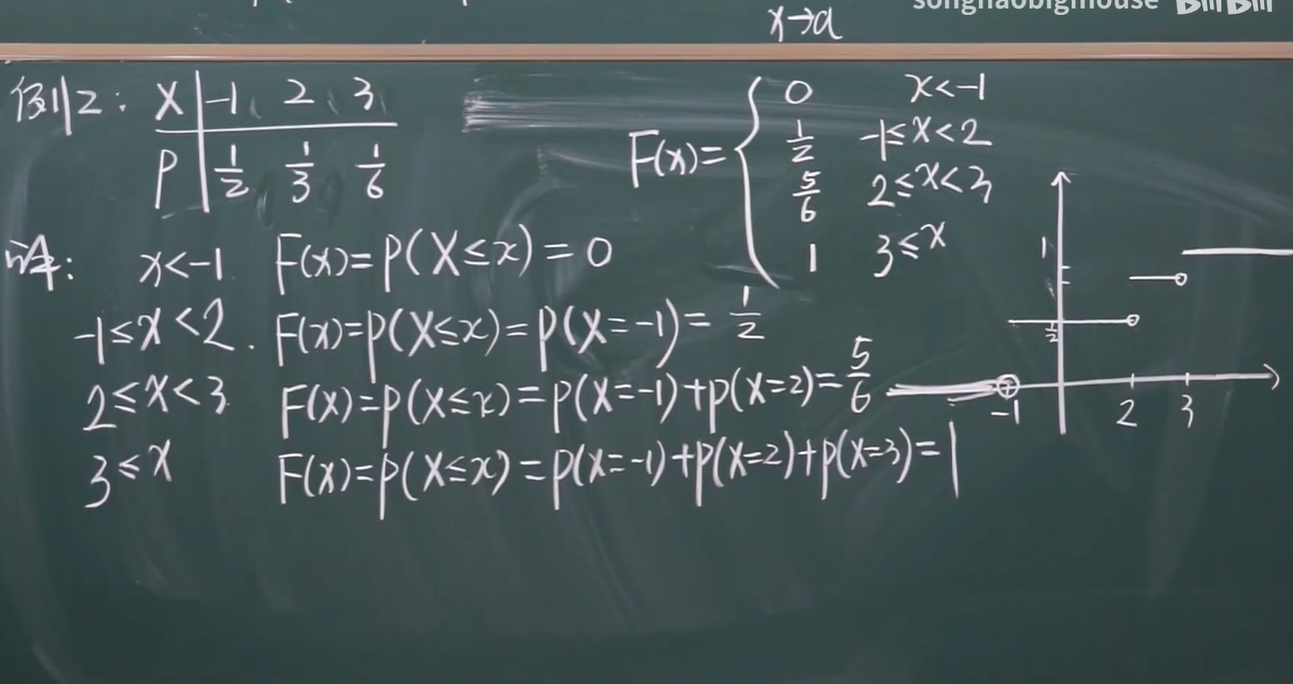 x→a
songhaobigmouse
例2: X -1 2 3
P 1/2 1/3 1/6
F(x)= { 0 x<-1
1/2 -1≤x<2
5/6 2≤x<3
1 3≤x
解: x<-1 F(x)=P(X≤x)=0
-1≤x<2. F(x)=P(X≤x)=P(X=-1)=1/2
2≤x<3 F(x)=P(X≤x)=P(X=-1)+P(X=2)=5/6
3≤x F(x)=P(X≤x)=P(X=-1)+P(X=2)+P(X=3)=1
1
1/2
-1 2 3